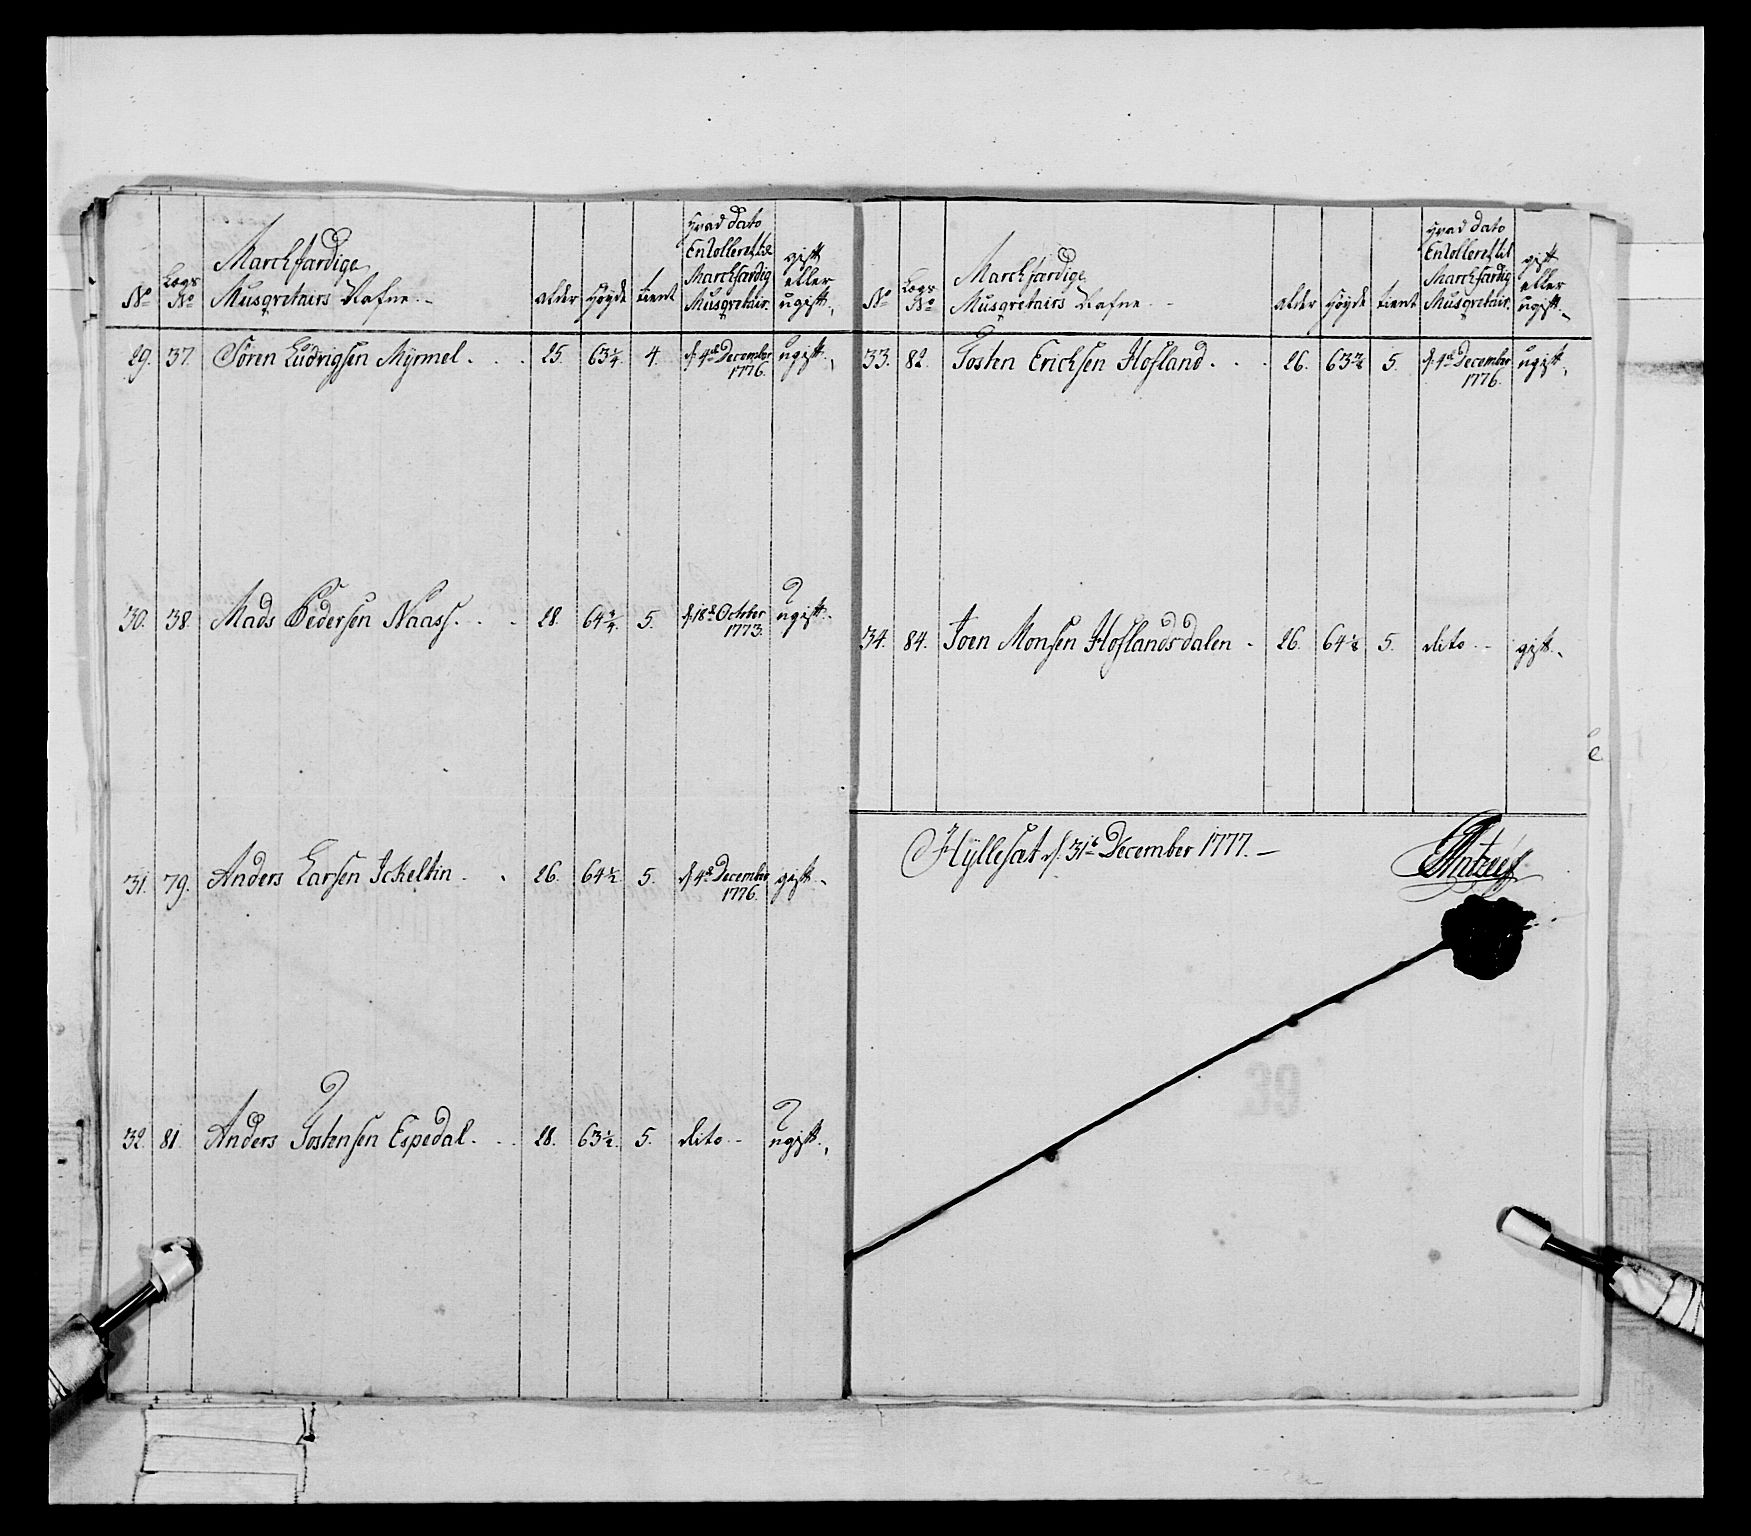 No
Lægs No
Marchfærdige
Musqvetairs Nafne.
alder
Høyde
tient
Hvad Dato
Enrolleret til
Marchfærdig
Musqvetair.
gift
eller
ugift.
29. 37. Sören Ludvigsen Myrmel. 25. 63 1/4 4. d. 4de December ugift.
1776.
30. 38. Mads Pedersen Naass. 28. 64 3/4. 5. d. 18de October ugift.
1773.
31. 79. Anders Larsen Ickeltin. 26. 64 1/2 5. d. 4de December gift.
1776.
32. 81. Anders Tostensen Espedal. 28. 63 1/2. 5. dito. ugift.
No
Lægs No
Marchfærdige
Musqvetairs Nafne.
alder
Høyde
tient
Hvad Dato
Enrolleret til
Marchfærdig
Musqvetair.
gift
eller
ugift.
33. 82. Tosten Ericksen Hofland. 26. 63 3/4 5. d. 4de December ugift.
1776.
34. 84. Joen Monsen Hoflandsdalen 26. 64 1/2 5. dito. gift.
Hyllesæt d. 31te December 1777.
39